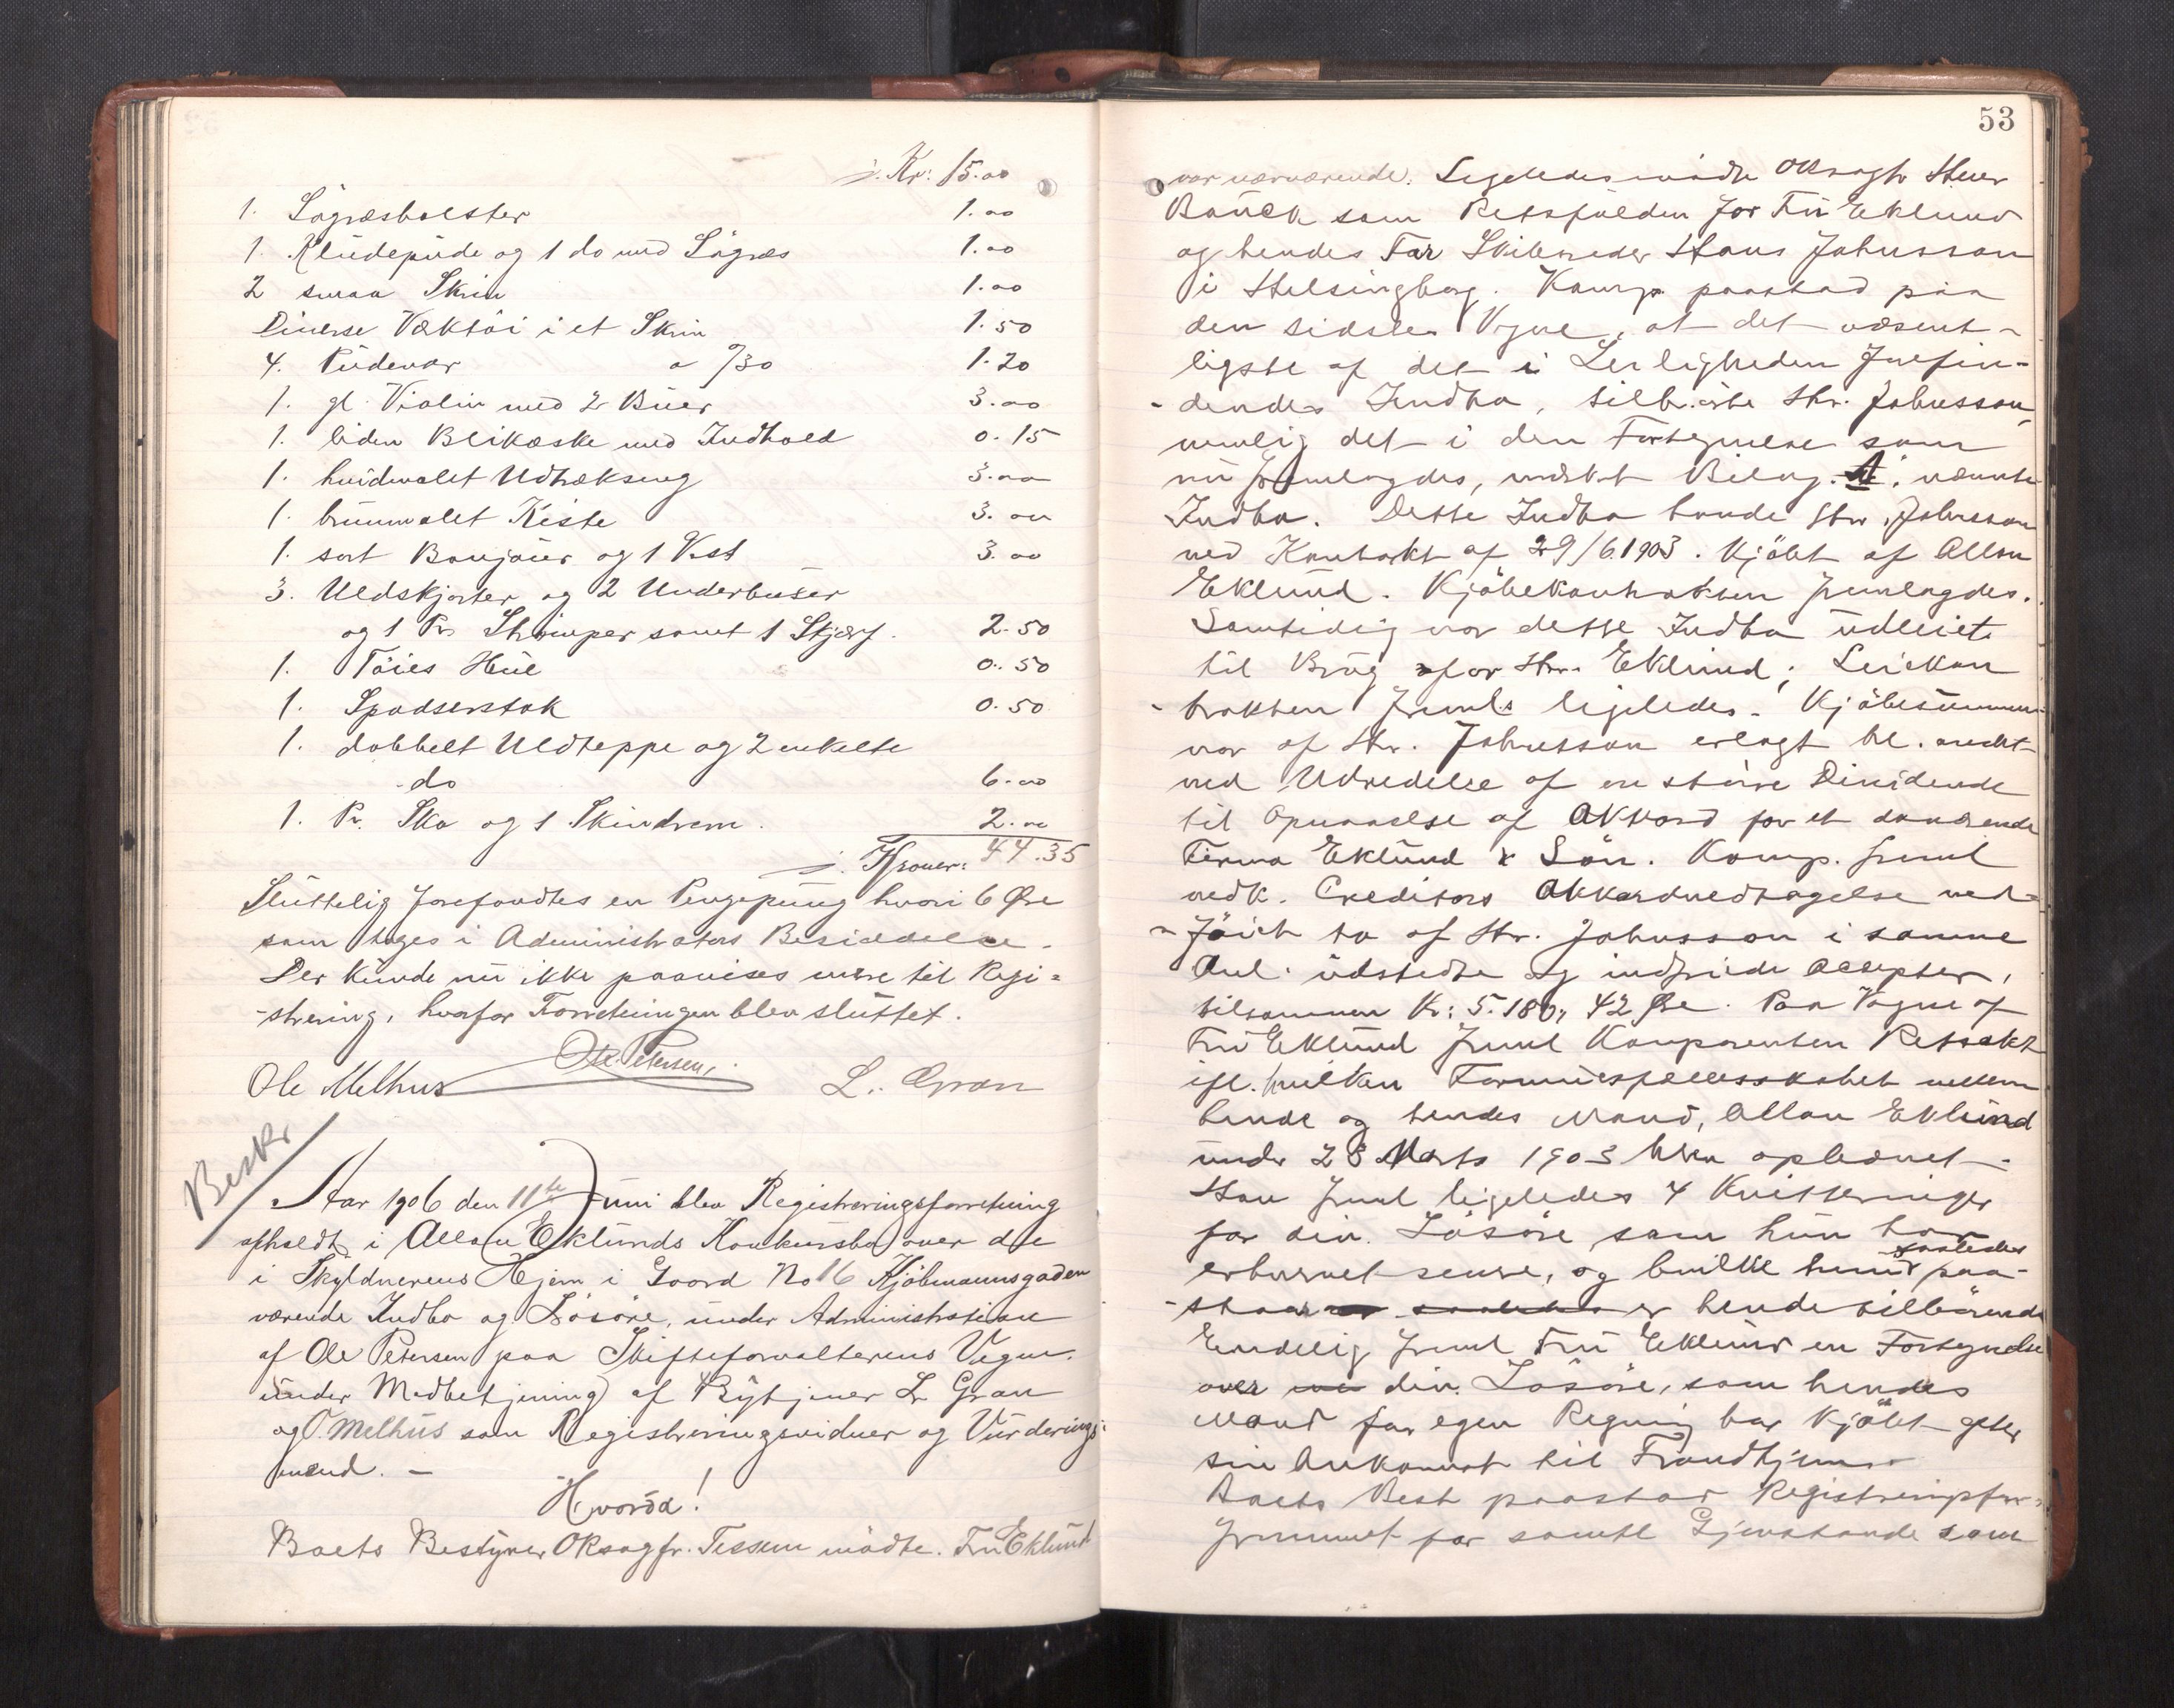 s. Kr: 15.00
1. Sögræsbolster 1.00
1. Kludepude og 1 do med Sögræs 1.00
2 smaa Skrin 1.00
Diverse Værktöi i et Skrin 1.50
4. Pudevar a /30 1.20
1. gl. Violin med 2 Buer 3.00
1. liden Blikæske med Indhold 0.15
1. hvidmalet Udtrækseng 3.00
1. brunmalet Kiste 3.00
1. sort Bonjour og 1 Vest 3.00
3. Uldskjorter og 2 Underbuxer
og 1 Par Strömper samt 1 Skjærf. 2.50
1. Töies Hue 0.50
1. Spadserstok 0.50
1. dobbelt Uldteppe og 2 enkelte
do 6.00
1. Pr. Sko og 1 Skindrem. 2.00
s. Kroner: 44.35
Sluttelig forefandtes en Pengepung hvori 6 Øre
som toges i Administrators Besiddelse.
Der kunde nu ikke paavises mere til Regi=
-strering, hvorfor Forretningen blev sluttet.
Ole Petersen.
Ole Melhus L. Gran
Beskr
Aar 1906 den 11te Juni blev Registreringsforretning
afholdt i Allan Eklunds Konkursbo over de
i Skyldnerens Hjem i Gaard No 16 Kjöbmannsgaden
værende Indbo og Lösöre, under Administration
af Ole Petersen paa Skifteforvalterens Vegne
under Medbetjening af Bytjener L Gran
og O Melhus som Registreringsvidner og Vurderings-
mænd. —
Hvorda!
Boets Bestyrer OKsagfr. Tessem mödte. Fru Eklund
53
var nærværende. Ligeledes mödte OKsagfr Steen
Bauck som Retsfuldm for Fru Eklund
og hendes Far Skibsreder Hans Johnsson
i Helsingborg. Komp. paastod paa
den sidstes Vegne, at det væsent-
ligste af det i Leiligheden forefin-
- dendes Indbo, tilhörte Hr. Johnsson,
nemlig det i den Fortegnelse som
nu fremlagdes, mrkt Bilag. A. nævnte
Indbo. Dette Indbo havde Hr. Johnsson
ved Kontrakt af 29/6.1903. kjöbt af Allan
Eklund. Kjöbekontrakten fremlagdes.
Samtidig var dette Indbo udleiet
til Brug for Hr. Eklund; Leiekon
- trakten freml. ligeledes. Kjöbesummen
var af Hr. Johnsson erlagt bl. andet
ved Udredelse af en större Dividende
til Opnaaelse af Akkord for et daværende
Firma Eklund & Sön. Komp. freml
vedk. Creditors Akkordvedtagelse ved-
- föiet to af Hr. Johnsson i samme
Anl. udstedte og indfriede Accepter,
tilsammen Kr: 5.180, 42 Øre. Paa Vegne af
Fru Eklund freml Komparenten Retsakt
ifl. hvilken Formuesfællesskabet mellem
hende og hendes Mand, Allan Eklund
under 28 Marts 1903 blev ophævet.
Han freml ligeledes 4 Kvitteringer
for div. Lösöre som hun har
erhvervet senere, og hvilke hun saaledes paa-
- staar er hende tilhörende
Endelig freml Fru Eklund en Fortegnelse
over div. Lösöre, som hendes
Mand for egen Regning har kjöbt efter
sin Ankomst til Trondhjem.
Boets Best paastod Registreringsfor-
fremmet for samtl Gjenstande som